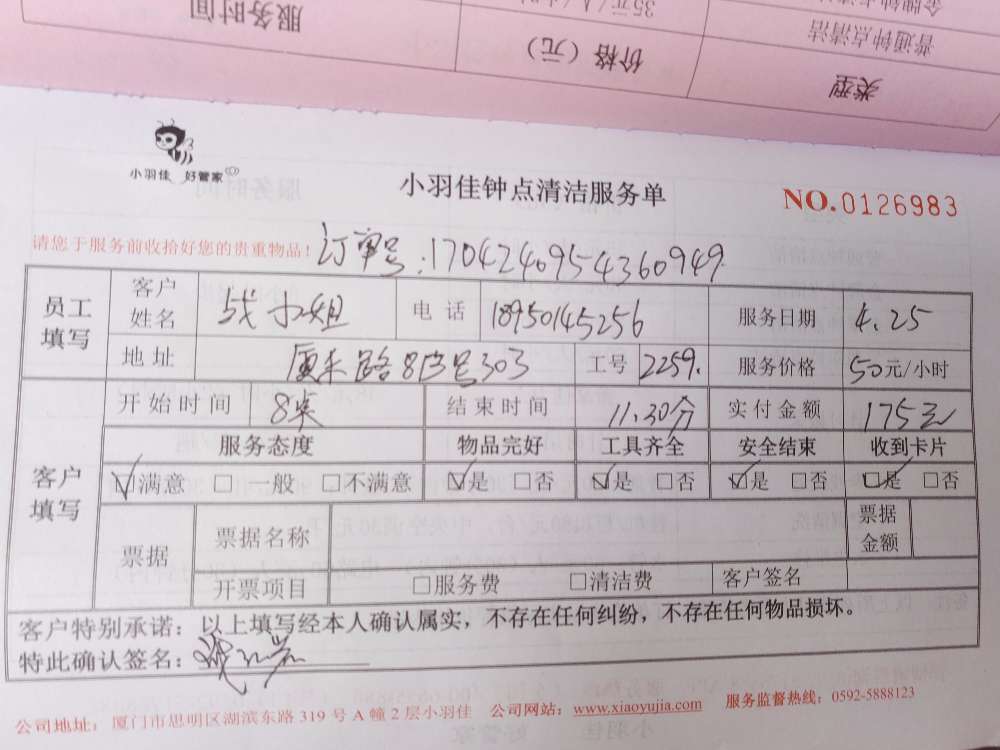 服务时间
价格（元）
35元/人/小时
类型
普通钟点清洁
小羽佳 好管家
小羽佳钟点清洁服务单
NO.0126983
请您于服务前收拾好您的贵重物品！
订单号:1704240954360949
员工填写
客户姓名 战小姐 电话 18950145256 服务日期 4.25
地址 路8号303 工号 2259. 服务价格 50元/小时
客户填写
开始时间 8点 结束时间 11.30分 实付金额 175元
服务态度 物品完好 工具齐全 安全结束 收到卡片
☑满意 □一般 □不满意 ☑是 □否 ☑是 □否 ☑是 □否 ☑是 □否
票据 票据名称 票据金额
开票项目 □服务费 □清洁费 客户签名
客户特别承诺：以上填写经本人确认属实，不存在任何纠纷，不存在任何物品损坏。
特此确认签名：
公司地址：厦门市思明区湖滨东路319号A幢2层小羽佳 公司网站：www.xiaoyujia.com 服务监督热线：0592-5888123